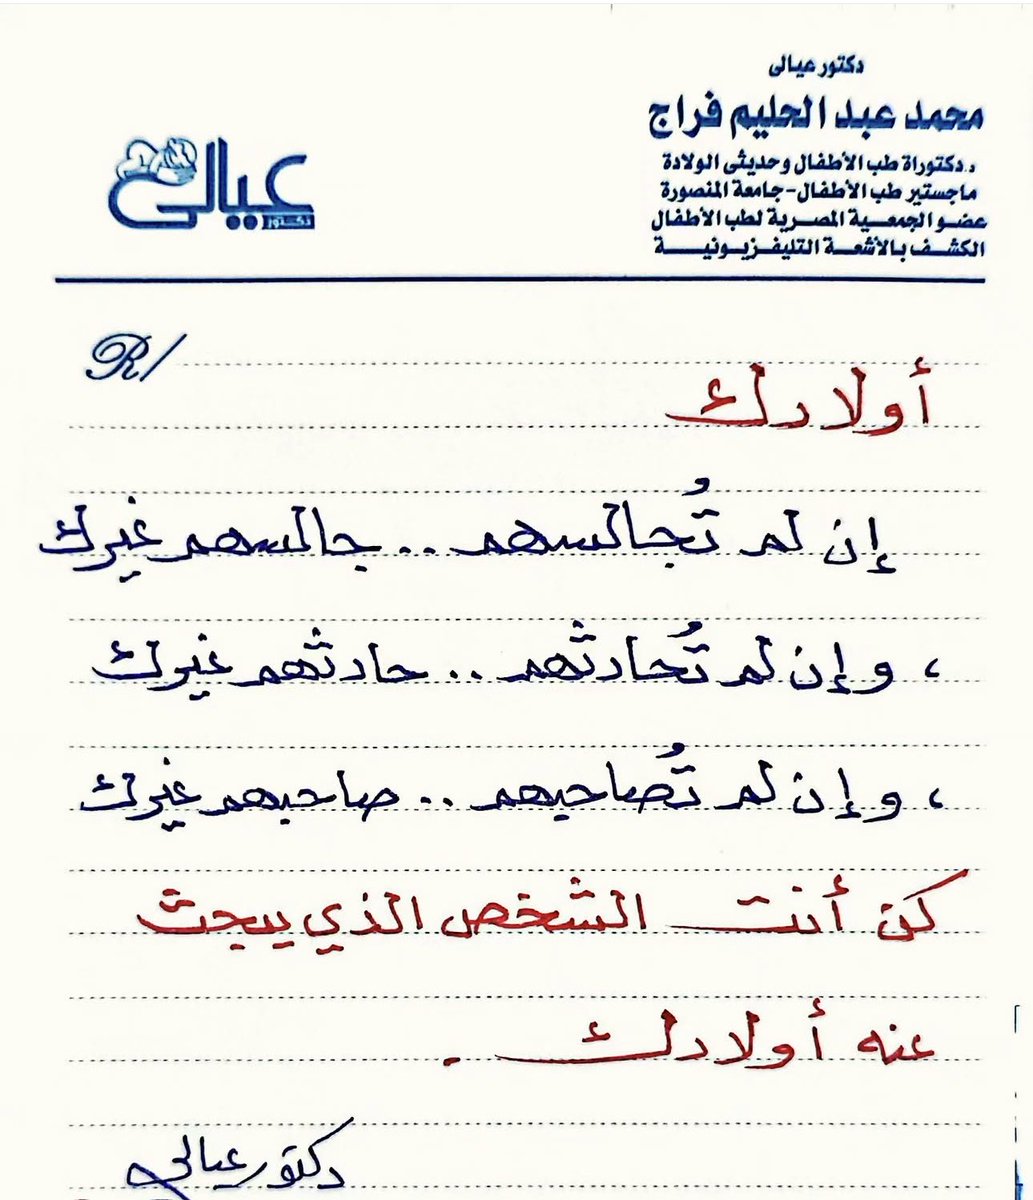 دكتور عيالى
محمد عبد الحليم فراج
د.دكتوراة طب الأطفال وحديثى الولادة
ماجستير طب الأطفال-جامعة المنصورة
عضو الجمعية المصرية لطب الأطفال
الكشف بالأشعة التليفزيونية
عيالى
دكتور
R/
أولادك
إن لم تُجالسهم .. جالسهم غيرك
، وإن لم تُحادثهم .. حادثهم غيرك
، وإن لم تُصاحبهم .. صاحبهم غيرك
كن أنت الشخص الذي يبحث
عنه أولادك .
دكتور عيالى